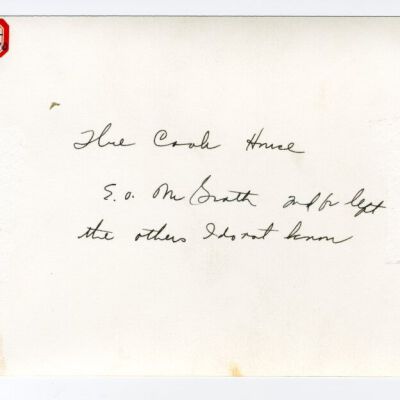 The Cook House
E. O. McGrath 2nd fr left
the others I do not know